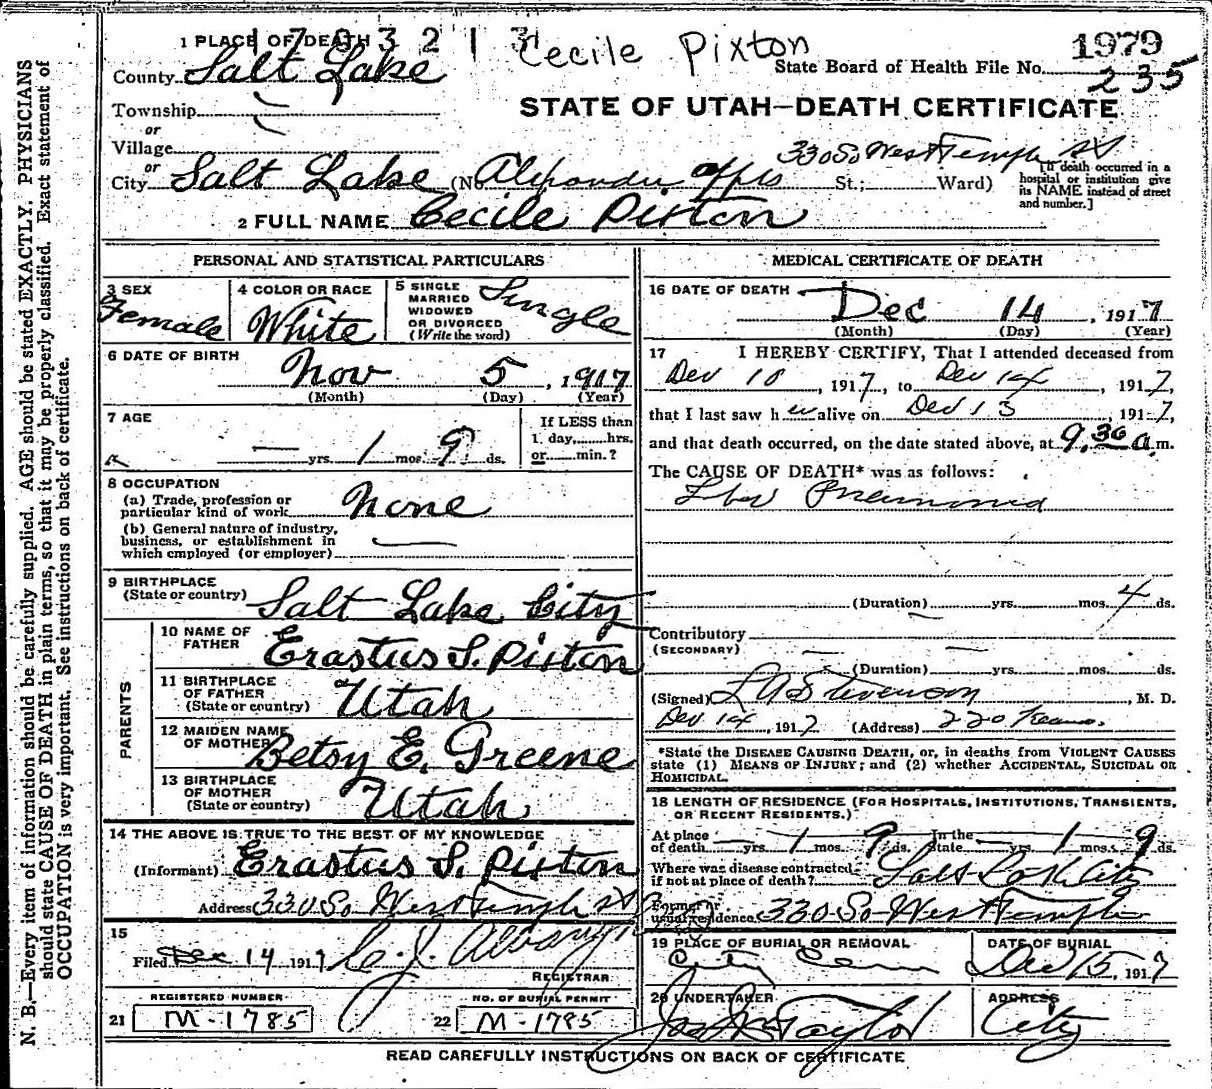 1703213 Cecile Pixton 1979
1 PLACE OF DEATH
County Salt Lake State Board of Health File No. 235
Township
STATE OF UTAH—DEATH CERTIFICATE
or
Village
330 So West Temple St
or
City Salt Lake (No. St.; Ward)
[If death occurred in a hospital or institution give its NAME instead of street and number.]
2 FULL NAME Cecile Pixton
PERSONAL AND STATISTICAL PARTICULARS
3 SEX Female
4 COLOR OR RACE White
5 SINGLE MARRIED WIDOWED OR DIVORCED (Write the word) Single
6 DATE OF BIRTH
Nov 5, 1917
(Month) (Day) (Year)
7 AGE
— yrs. 1 mos. 9 ds.
If LESS than 1 day, hrs. or min.?
8 OCCUPATION
(a) Trade, profession or particular kind of work None
(b) General nature of industry, business, or establishment in which employed (or employer) —
9 BIRTHPLACE
(State or country) Salt Lake City
PARENTS
10 NAME OF FATHER Erastus S. Pixton
11 BIRTHPLACE OF FATHER (State or country) Utah
12 MAIDEN NAME OF MOTHER Betsy E. Greene
13 BIRTHPLACE OF MOTHER (State or country) Utah
14 THE ABOVE IS TRUE TO THE BEST OF MY KNOWLEDGE
(Informant) Erastus S. Pixton
Address 330 So West Temple St
15
Filed Dec 14 1917
REGISTRAR
REGISTERED NUMBER
21 M-1785
NO. OF BURIAL PERMIT
22 M-1785
MEDICAL CERTIFICATE OF DEATH
16 DATE OF DEATH
Dec 14, 1917
(Month) (Day) (Year)
17 I HEREBY CERTIFY, That I attended deceased from
Dec 10, 1917, to Dec 14, 1917,
that I last saw her alive on Dec 13, 1917,
and that death occurred, on the date stated above, at 9.30 a.m.
The CAUSE OF DEATH* was as follows:
Pneumonia
(Duration) yrs. mos. 4 ds.
Contributory
(SECONDARY)
(Duration) yrs. mos. ds.
(Signed) Stevenson, M. D.
Dec 14, 1917 (Address) 220 Kearns.
*State the DISEASE CAUSING DEATH, or, in deaths from VIOLENT CAUSES
state (1) MEANS OF INJURY; and (2) whether ACCIDENTAL, SUICIDAL OR
HOMICIDAL.
18 LENGTH OF RESIDENCE (FOR HOSPITALS, INSTITUTIONS, TRANSIENTS,
OR RECENT RESIDENTS.)
At place of death — yrs. 1 mos. 9 ds. In the State — yrs. 1 mos. 9 ds.
Where was disease contracted if not at place of death? Salt Lake City
Former or usual residence 330 So West Temple
19 PLACE OF BURIAL OR REMOVAL
City Cem
DATE OF BURIAL
Dec 15, 1917
20 UNDERTAKER
Taylor
ADDRESS
City
READ CAREFULLY INSTRUCTIONS ON BACK OF CERTIFICATE
N. B.—Every item of information should be carefully supplied. AGE should be stated EXACTLY. PHYSICIANS
should state CAUSE OF DEATH in plain terms, so that it may be properly classified. Exact statement of
OCCUPATION is very important. See instructions on back of certificate.